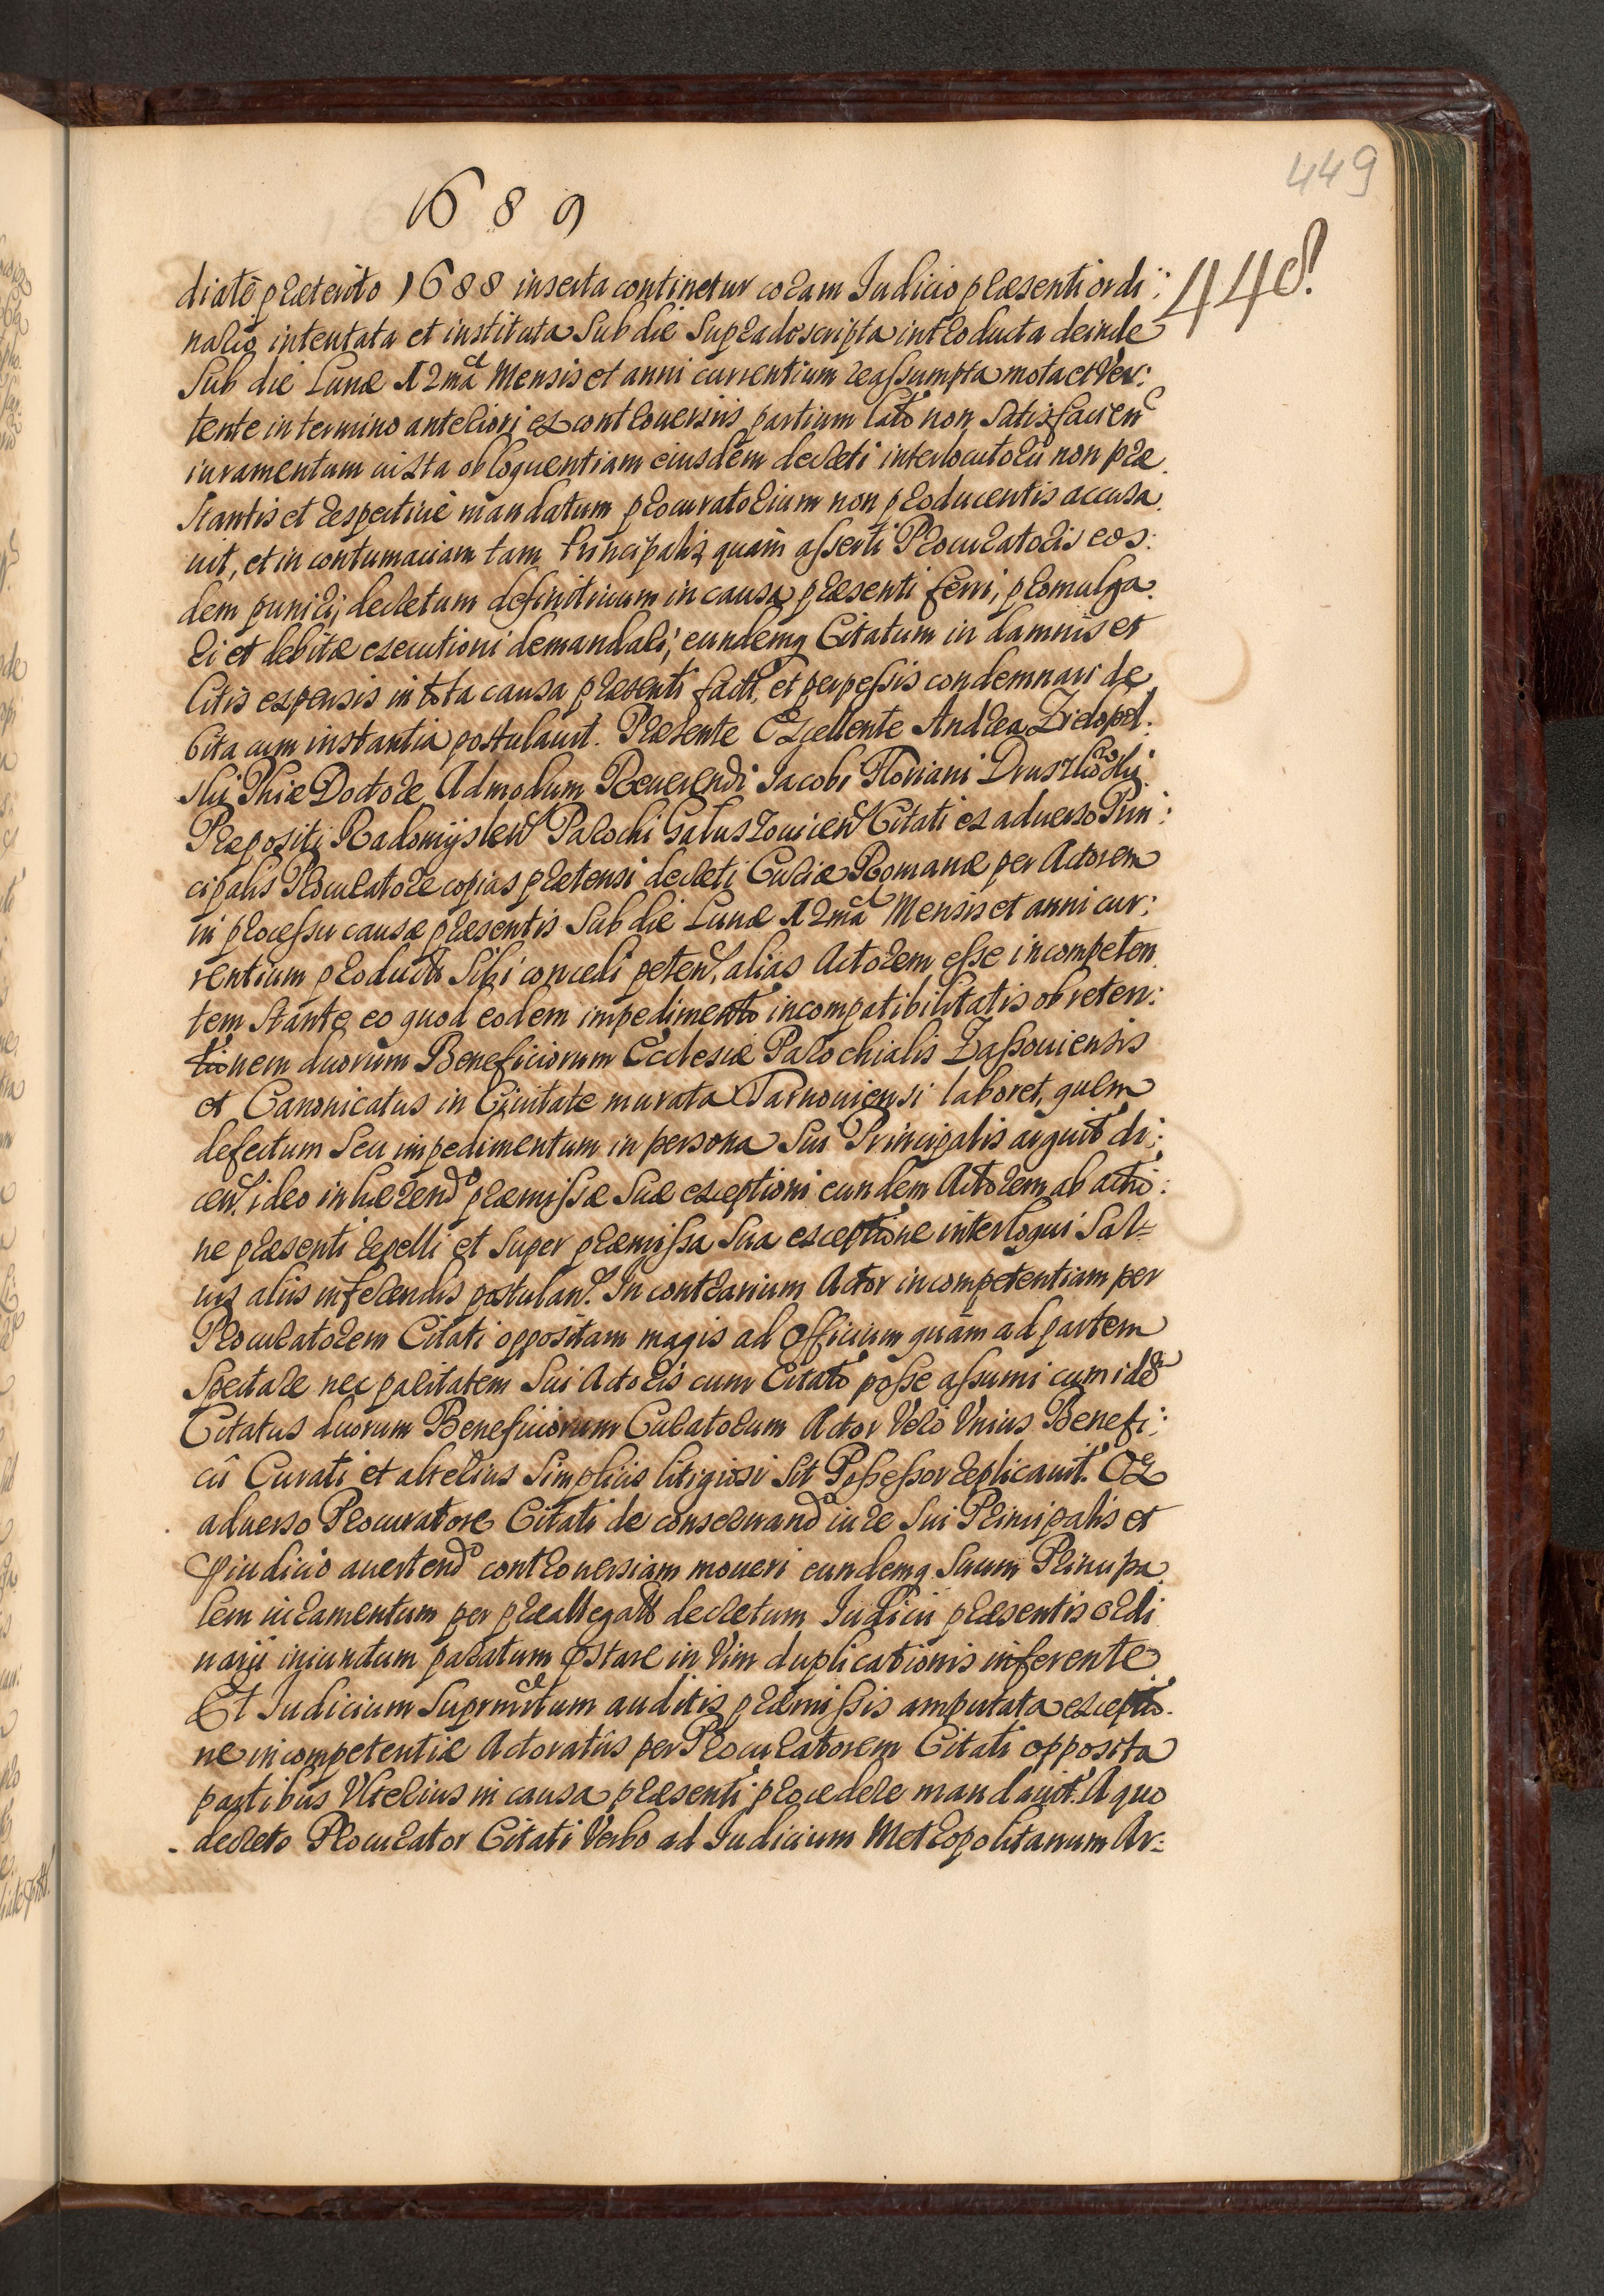 449
1689
448.
diatè præterito 1688 inserta continetur coram Iudicio præsenti ordi:
nario intentata et instituta sub die supradescripta introducta deinde
Sub die Lunæ 12ma Mensis et anni currentium reassumpta mota et Ver:
tente in termino anteriori ex controuersiis partium lato non satisfacien
iuramentum iuxta obloquentiam eiusdem decreti interlocutorii non præ
stantis et respectiuè mandatum procuratorium non producentis accusa
uit, et in contumaciam tam Principalis quàm asserti Procuratoris eos:
dem puniri, decretum definitiuum in causa præsenti ferri, promulga
ri et debitæ executioni demandari, eundemq Citatum in damnis et
litis expensis in tota causa præsenti factis, et perpessis condemnari de
bita cum instantia postulauit. Præsente Excellente Andrea Zidopol:
ski Phiæ Doctore Admodum Reuerendi Iacobi Floriani Druszkowski
Præpositi Radomyslen Parochi Galuszouicien Citati ex aduerso Prin:
cipalis Procuratore copias prætensi decreti Curiæ Romanæ per Actorem
in processu causæ præsentis sub die Lunæ 12ma Mensis et anni cur:
rentium producti Sibi concedi peten, alias Actorem esse incompeten
tem stante eo quod eodem impedimento incompatibilitatis ob reten:
tionem duorum Beneficiorum Ecclesiæ Parochialis Zassouiensis
et Canonicatus in Ciuitate murata Tarnouiensi laboret, quem
defectum seu impedimentum in persona Sui Principalis arguit di:
cen, ideo inhærendo præmissæ Suæ exceptioni eundem Actorem ab actio:
ne præsenti repelli et super præmissa Sua exceptione interloqui Sal=
uis aliis inferendis postulan. In contrarium Actor incompetentiam per
Procuratorem Citati oppositam magis ad Officium quàm ad partem
Spectare nec paritatem Sui Actoris cum Citato posse assumi cum idem
Citatus duorum Beneficiorum Curatorum Actor Verò Vnius Benefi:
cii Curati et alterius Simplicis litigiosi Sit Possessor replicauit. Ex
aduerso Procuratore Citati de conseruando iure Sui Principalis et
Piudicio auertendo controuersiam moueri eundemq Suum Principa
lem iuramentum per præallegatum decretum Iudicii præsentis ordi
narii iniunctum paratum pstare in Vim duplicationis inferente
Et Iudicium Suprmtum auditis præmissis amputata exceptio
ne incompetentiæ Actoratûs per Procuratorem Citati opposita
partibus Vlterius in causa præsenti procedere mandauit. A quo
decreto Procurator Citati Verbo ad Iudicium Metropolitanum Ar: